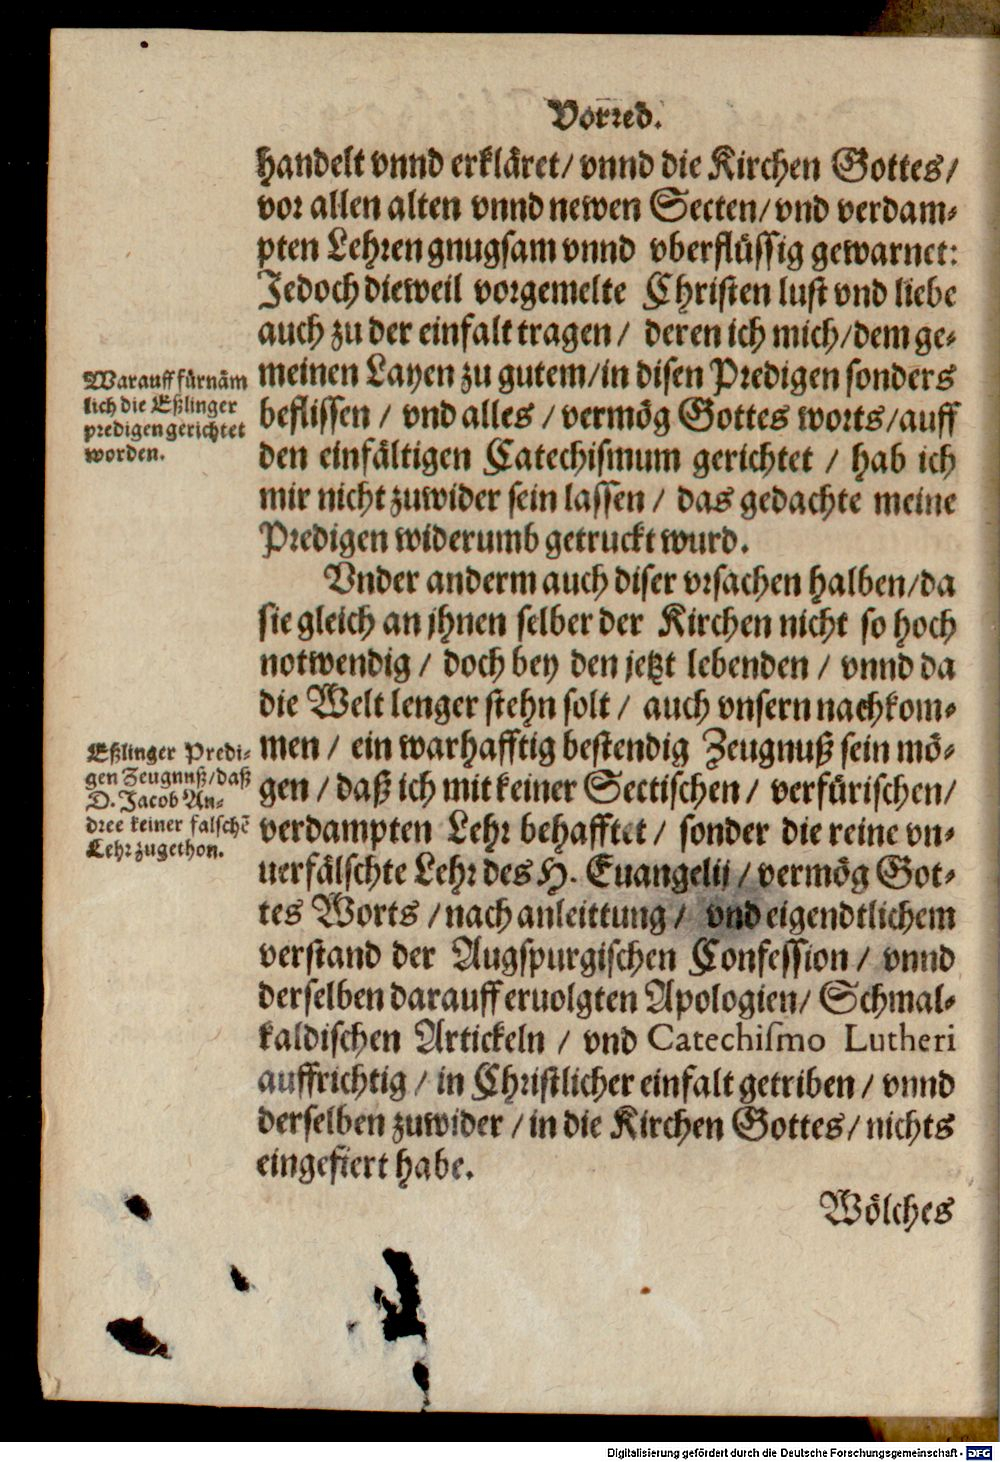 Vorred.
handelt vnnd erkläret/ vnnd die Kirchen Gottes/
vor allen alten vnnd newen Secten/ vnd verdam-
pten Lehren gnugsam vnnd vberflüssig gewarnet:
Jedoch dieweil vorgemelte Christen lust vnd liebe
auch zu der einfalt tragen / deren ich mich/dem ge-
meinen Layen zu gutem/in disen Predigen sonders
beflissen / vnd alles / vermög Gottes worts/auff
den einfältigen Catechismum gerichtet / hab ich
mir nicht zuwider sein lassen / das gedachte meine
Predigen widerumb getruckt wurd.
Warauff fürnäm
lich die Eßlinger
predigen gerichtet
worden.
Vnder anderm auch diser vrsachen halben/da
sie gleich an jhnen selber der Kirchen nicht so hoch
notwendig / doch bey den jetzt lebenden / vnnd da
die Welt lenger stehn solt / auch vnsern nachkom-
men / ein warhafftig bestendig Zeugnuß sein mö-
gen / daß ich mit keiner Sectischen / verfürischen/
verdampten Lehr behafftet / sonder die reine vn-
uerfälschte Lehr des H. Euangelij / vermög Got-
tes Worts / nach anleittung / vnd eigendtlichem
verstand der Augspurgischen Confession / vnnd
derselben darauff eruolgten Apologien/ Schmal-
kaldischen Artickeln / vnd Catechiſmo Lutheri
auffrichtig / in Christlicher einfalt getriben / vnnd
derselben zuwider / in die Kirchen Gottes / nichts
eingefiert habe.
Eßlinger Predi-
gen Zeugnnß/daß
D. Jacob An-
dree keiner falschē
Lehr zugethon.
Wölches
Digitalisierung gefördert durch die Deutsche Forschungsgemeinschaft - DFG